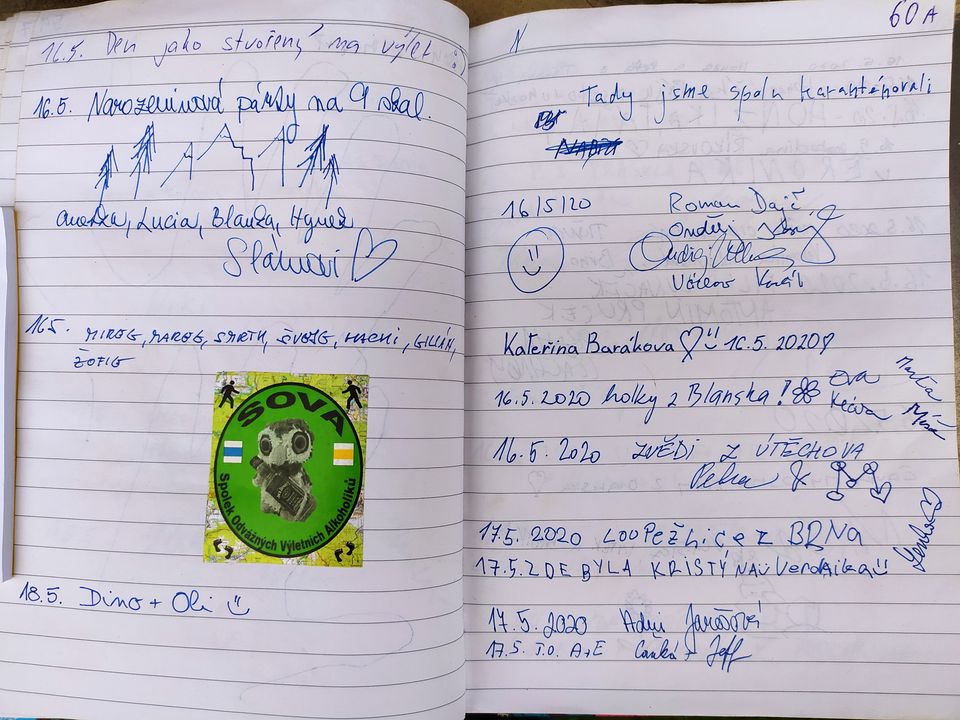 16.5. Den jako stvořený na výlet :)
16.5. Narozeninová párty na 9 skal.
Anežka, Lucia, Blanka, Hynek
Slámovi
16.5. MIREK, MAREK, SMRTH, ŠVEJK, HACHI, GILLIÁN,
ŽOFIE
SOVA
Spolek Odvážných Výletních Alkoholiků
18.5. Dino + Oli
60A
Tady jsme spolu karanténovali
16/5/20 Roman
Ondřej
Ondřej
Václav
Kateřina Barákova 16.5.2020
16.5.2020 holky z Blanska! Eva
Klára
Marta
Míša
16.5.2020 ZVĚDI Z ÚTĚCHOVA
Petra &
Lenka
17.5.2020 LOUPEŽNICE Z BRNA
17.5. ZDE BYLA KRISTÝNA
17.5.2020 Adri Jarošová
17.5. J.O. A+E + Jeff